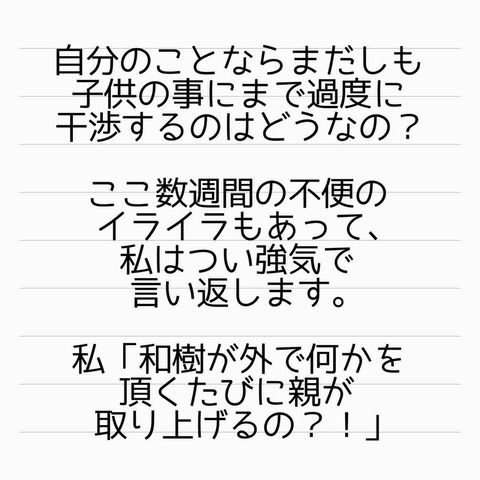 自分のことならまだしも
子供の事にまで過度に
干渉するのはどうなの？
ここ数週間の不便の
イライラもあって、
私はつい強気で
言い返します。
私「和樹が外で何かを
頂くたびに親が
取り上げるの？！」